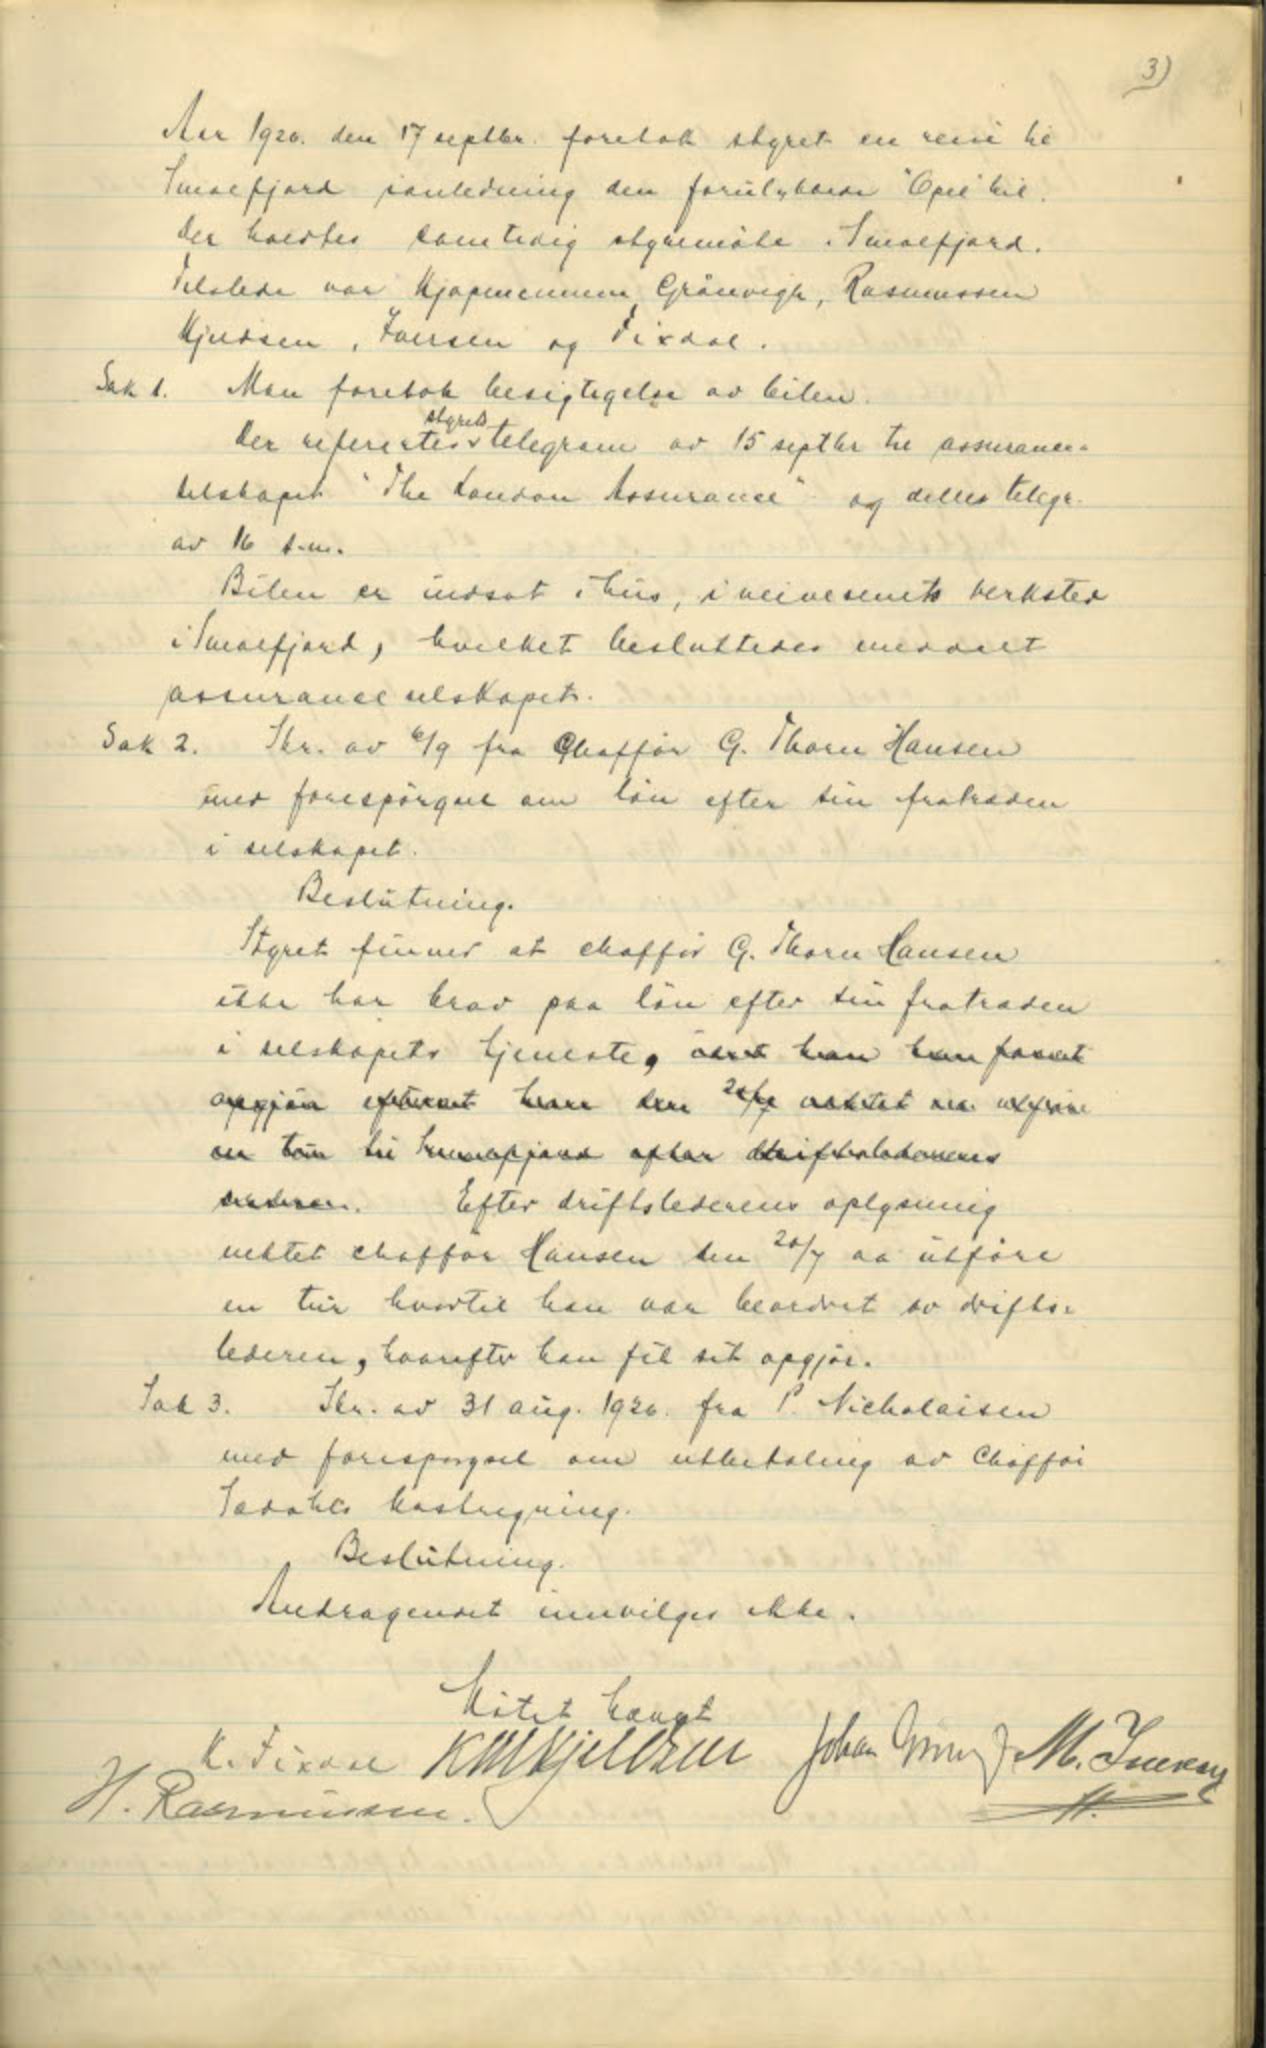 3)
Aar 1920. den 17 septbr. foretok styret en reise til
Smaafjord i anledning den forulykkede "Opel" bil.
Der holdtes samtidig styremöte i Smaafjord.
Tilstede var Kjöpmennene Grönvigh, Rasmussen
Kjeldsen, Iversen og Fixdal.
Sak 1. Man foretok besigtigelse av bilen.
Der refertes styrets telegram av 15 septbr til assurance-
selskapet "The London Assurance" og dettes telegr.
av 16 s.m.
Bilen er indsat i hus, i veivesenets verksted
i Smaafjord, hvilket besluttedes meddelt
assuranceselskapet.
Sak 2. Skr. av 6/9 fra Chafför G. Thorn Hansen
med forespörgsel om lön efter sin fratræden
i selskapet.
Beslutning.
Styret finner at chafför G. Thorn Hansen
ikke har krav paa lön efter sin fratræden
i selskapets tjeneste, han
opgjör 20/7 nektet aa utföre
en tur til efter driftslederens
Efter driftslederens oplysning
nektet chafför Hansen den 20/7 aa utföre
en tur hvortil han var beordret av drifts-
lederen, hvorefter han fik sit opgjör.
Sak 3. Skr. av 31 aug. 1920. fra P. Nicholaisen
med forespörgsel om utbetaling av Chafför
kostregning.
Beslutning.
Andragendet innvilges ikke.
Mötet hævet
K. Fixdal KM Kjeldsen Johan M. Iversen
H. Rasmussen.